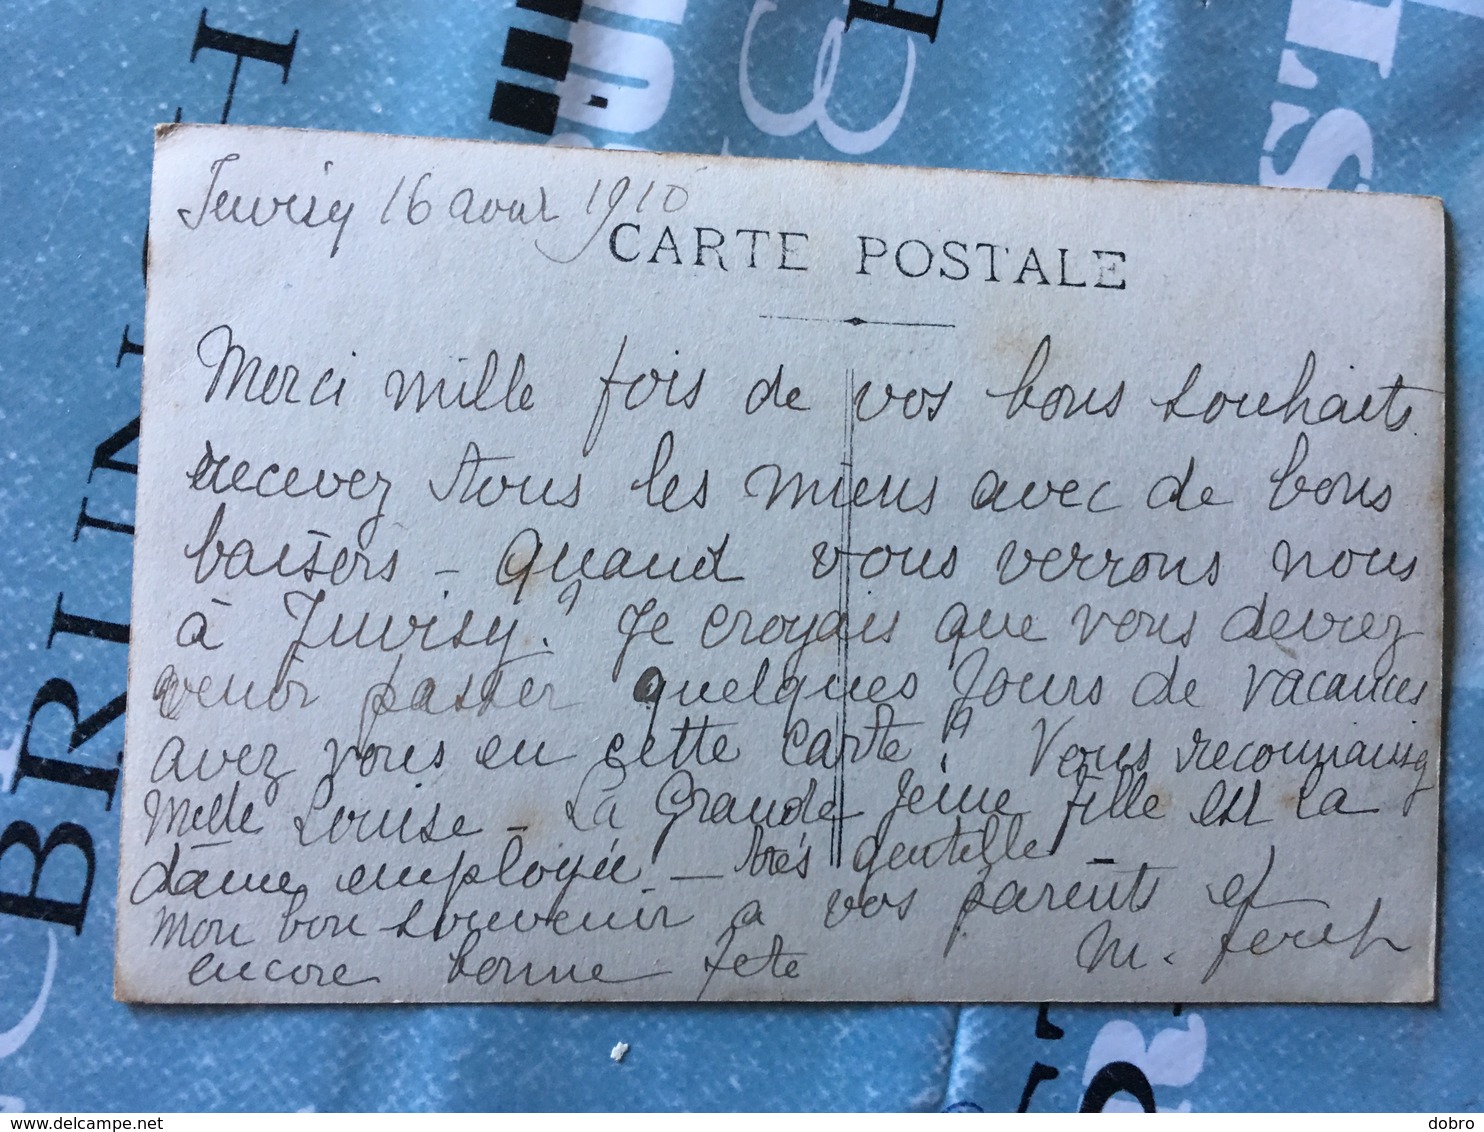 Juvisy 16 aout 1910
CARTE POSTALE
Merci mille fois de vos bons souhaits
recevez tous les miens avec de bons
baisers - Quand vous verrons nous
à Juvisy? Je croyais que vous devrez
venir passer quelques jours de vacances
avez vous eu cette carte? Vous reconnaissez
Melle Louise - La Grande jeune fille est la
dâme employée - très gentille -
mon bon souvenir a vos parents et
encore bonne fete M.
BRIN
dobro